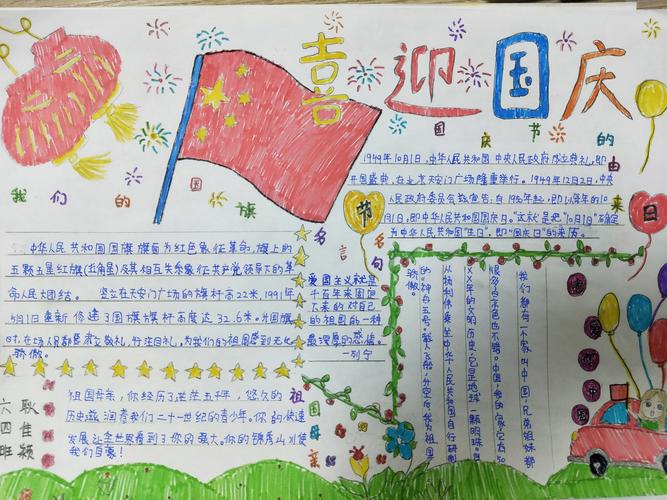 喜迎国庆
国庆节的由来
1949年10月1日,中华人民共和国中央人民政府成立典礼,即
开国盛典,在北京天安门广场隆重举行。1949年12月2日,中央
人民政府委员会宣告,自1950年起,即以每年的10
月1日,即中华人民共和国国庆日。"这就是把"10月1日"确定
为中华人民共和国"生日",即"国庆日"的来历。
我们的国旗
中华人民共和国国旗旗面为红色象征革命,旗上的
五颗五星红旗及其相互关系象征共产党领导下的革
命人民大团结。竖立在天安门广场的旗杆高22米,1991年
5月1日重新修造了国旗旗杆高度达32.6米。升国旗
时,在场人都肃立敬礼,行注目礼,为我们的祖国感到无比
骄傲。
名言名句
爱国主义就是
千百年来固定
下来的对自己
的祖国的一种
最深厚的感情。
—列宁
节日
我们都有一个家,叫中国,兄弟姐妹都
很多,景色也不错。中国,我的家,它有50
XX年的文明历史,它是地球一颗明珠。自
从杨利伟乘坐中华人民共和国自行研制
的"神舟五号"载人飞船,升空,为我祖国
骄傲。
祖国母亲
祖国母亲,你经历了茫茫五千年,悠久的
历史滋润着我们二十一世纪的青少年。你的快速
发展让全世界看到了你的强大。你的锦秀山川使
我们自豪!
六四班
耿佳颖